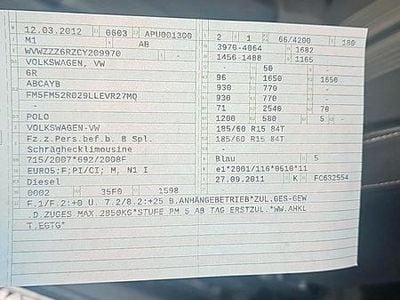 12.03.2012 0603 APU001300
M1 AB
WVWZZZ6RZCY209970 -
VOLKSWAGEN, VW
6R
ABCAYB
FM5FM52R029LLEVR27MQ
-
POLO
VOLKSWAGEN-VW
Fz.z.Pers.bef.b. 8 Spl.
Schräghecklimousine
715/2007*692/2008F
EURO5;F;PI/CI; M, N1 I
Diesel
0002 35F0 1598
2 1 66/4200 180
3970-4064 1682
1456-1488 1165
- 50 -
96 1650 1650
930 770 -
930 770 -
71 2540 70
1200 580 5 -
185/60 R15 84T
185/60 R15 84T
- -
Blau 5
e1*2001/116*0510*11
27.09.2011 K FC632554
F.1/F.2:+0 U. 7.2/8.2:+25 B.ANHÄNGEBETRIEB*ZUL.GES-GEW
.D.ZUGES MAX.2850KG*STUFE PM 5 AB TAG ERSTZUL.*WW.AHKL
T.EGTG*